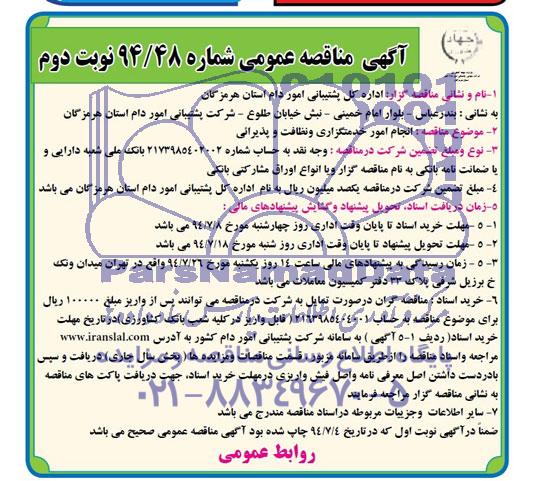 جهاد
آگهی مناقصه عمومی شماره ۹۴/۴۸ نوبت دوم
۱-نام و نشانی مناقصه گزار: اداره کل پشتیبانی امور دام استان هرمزگان
به نشانی : بندرعباس - بلوار امام خمینی - نبش خیابان طلوع - شرکت پشتیبانی امور دام استان هرمزگان
۲- موضوع مناقصه : انجام امور خدمتگزاری ونظافت و پذیرائی
۳- نوع ومبلغ تضمین شرکت درمناقصه : وجه نقد به حساب شماره ۲۱۷۳۹۸۵۴۰۲۰۰۲ بانک ملی شعبه دارایی و
یا ضمانت نامه بانکی به نام مناقصه گزار ویا انواع اوراق مشارکتی بانکی
۴- مبلغ تضمین شرکت درمناقصه یکصد میلیون ریال به نام اداره کل پشتیبانی امور دام استان هرمزگان می باشد
۵-زمان دریافت اسناد، تحویل پیشنهاد وگشایش پیشنهادهای مالی :
۱- ۵ -مهلت خرید اسناد تا پایان وقت اداری روز چهارشنبه مورخ ۹۴/۷/۸ می باشد
۲- ۵ -مهلت تحویل پیشنهاد تا پایان وقت اداری روز شنبه مورخ ۹۴/۷/۱۸ می باشد
۳- ۵ - زمان رسیدگی به پیشنهادهای مالی ساعت ۱۴ روز یکشنبه مورخ ۹۴/۷/۲۶ واقع در تهران میدان ونک
خ برزیل شرقی پلاک ۳۳ دفتر کمیسیون معاملات می باشد
۶- خرید اسناد : مناقصه گران درصورت تمایل به شرکت درمناقصه می توانند پس از واریز مبلغ ۱۰۰۰۰۰ ریال
برای موضوع مناقصه به حساب ۲۱۶۳۹۸۵۴۰۴۰۰۱ ( قابل واریز در کلیه شعب بانک کشاورزی)درتاریخ مهلت
خرید اسناد( ردیف ۱-۵ آگهی ) به سامانه شرکت پشتیبانی امور دام کشور به آدرس www.iranslal.com
مراجعه واسناد مناقصه را ازطریق سامانه مزبور، قسمت مناقصات ومزایده ها (بخش سال جاری) دریافت و سپس
بادردست داشتن اصل معرفی نامه واصل فیش واریزی درمهلت خرید اسناد، جهت دریافت پاکت های مناقصه
به نشانی مناقصه گزار مراجعه فرمایند
۷- سایر اطلاعات وجزییات مربوطه دراسناد مناقصه مندرج می باشد
ضمناً درآگهی نوبت اول که درتاریخ ۹۴/۷/۴ چاپ شده بود آگهی مناقصه عمومی صحیح می باشد
روابط عمومی
ParsNamadData
پایگاه اطلاع رسانی مناقصه و مزایده
۰۲۱-۸۸۳۴۹۶۷۰-۵